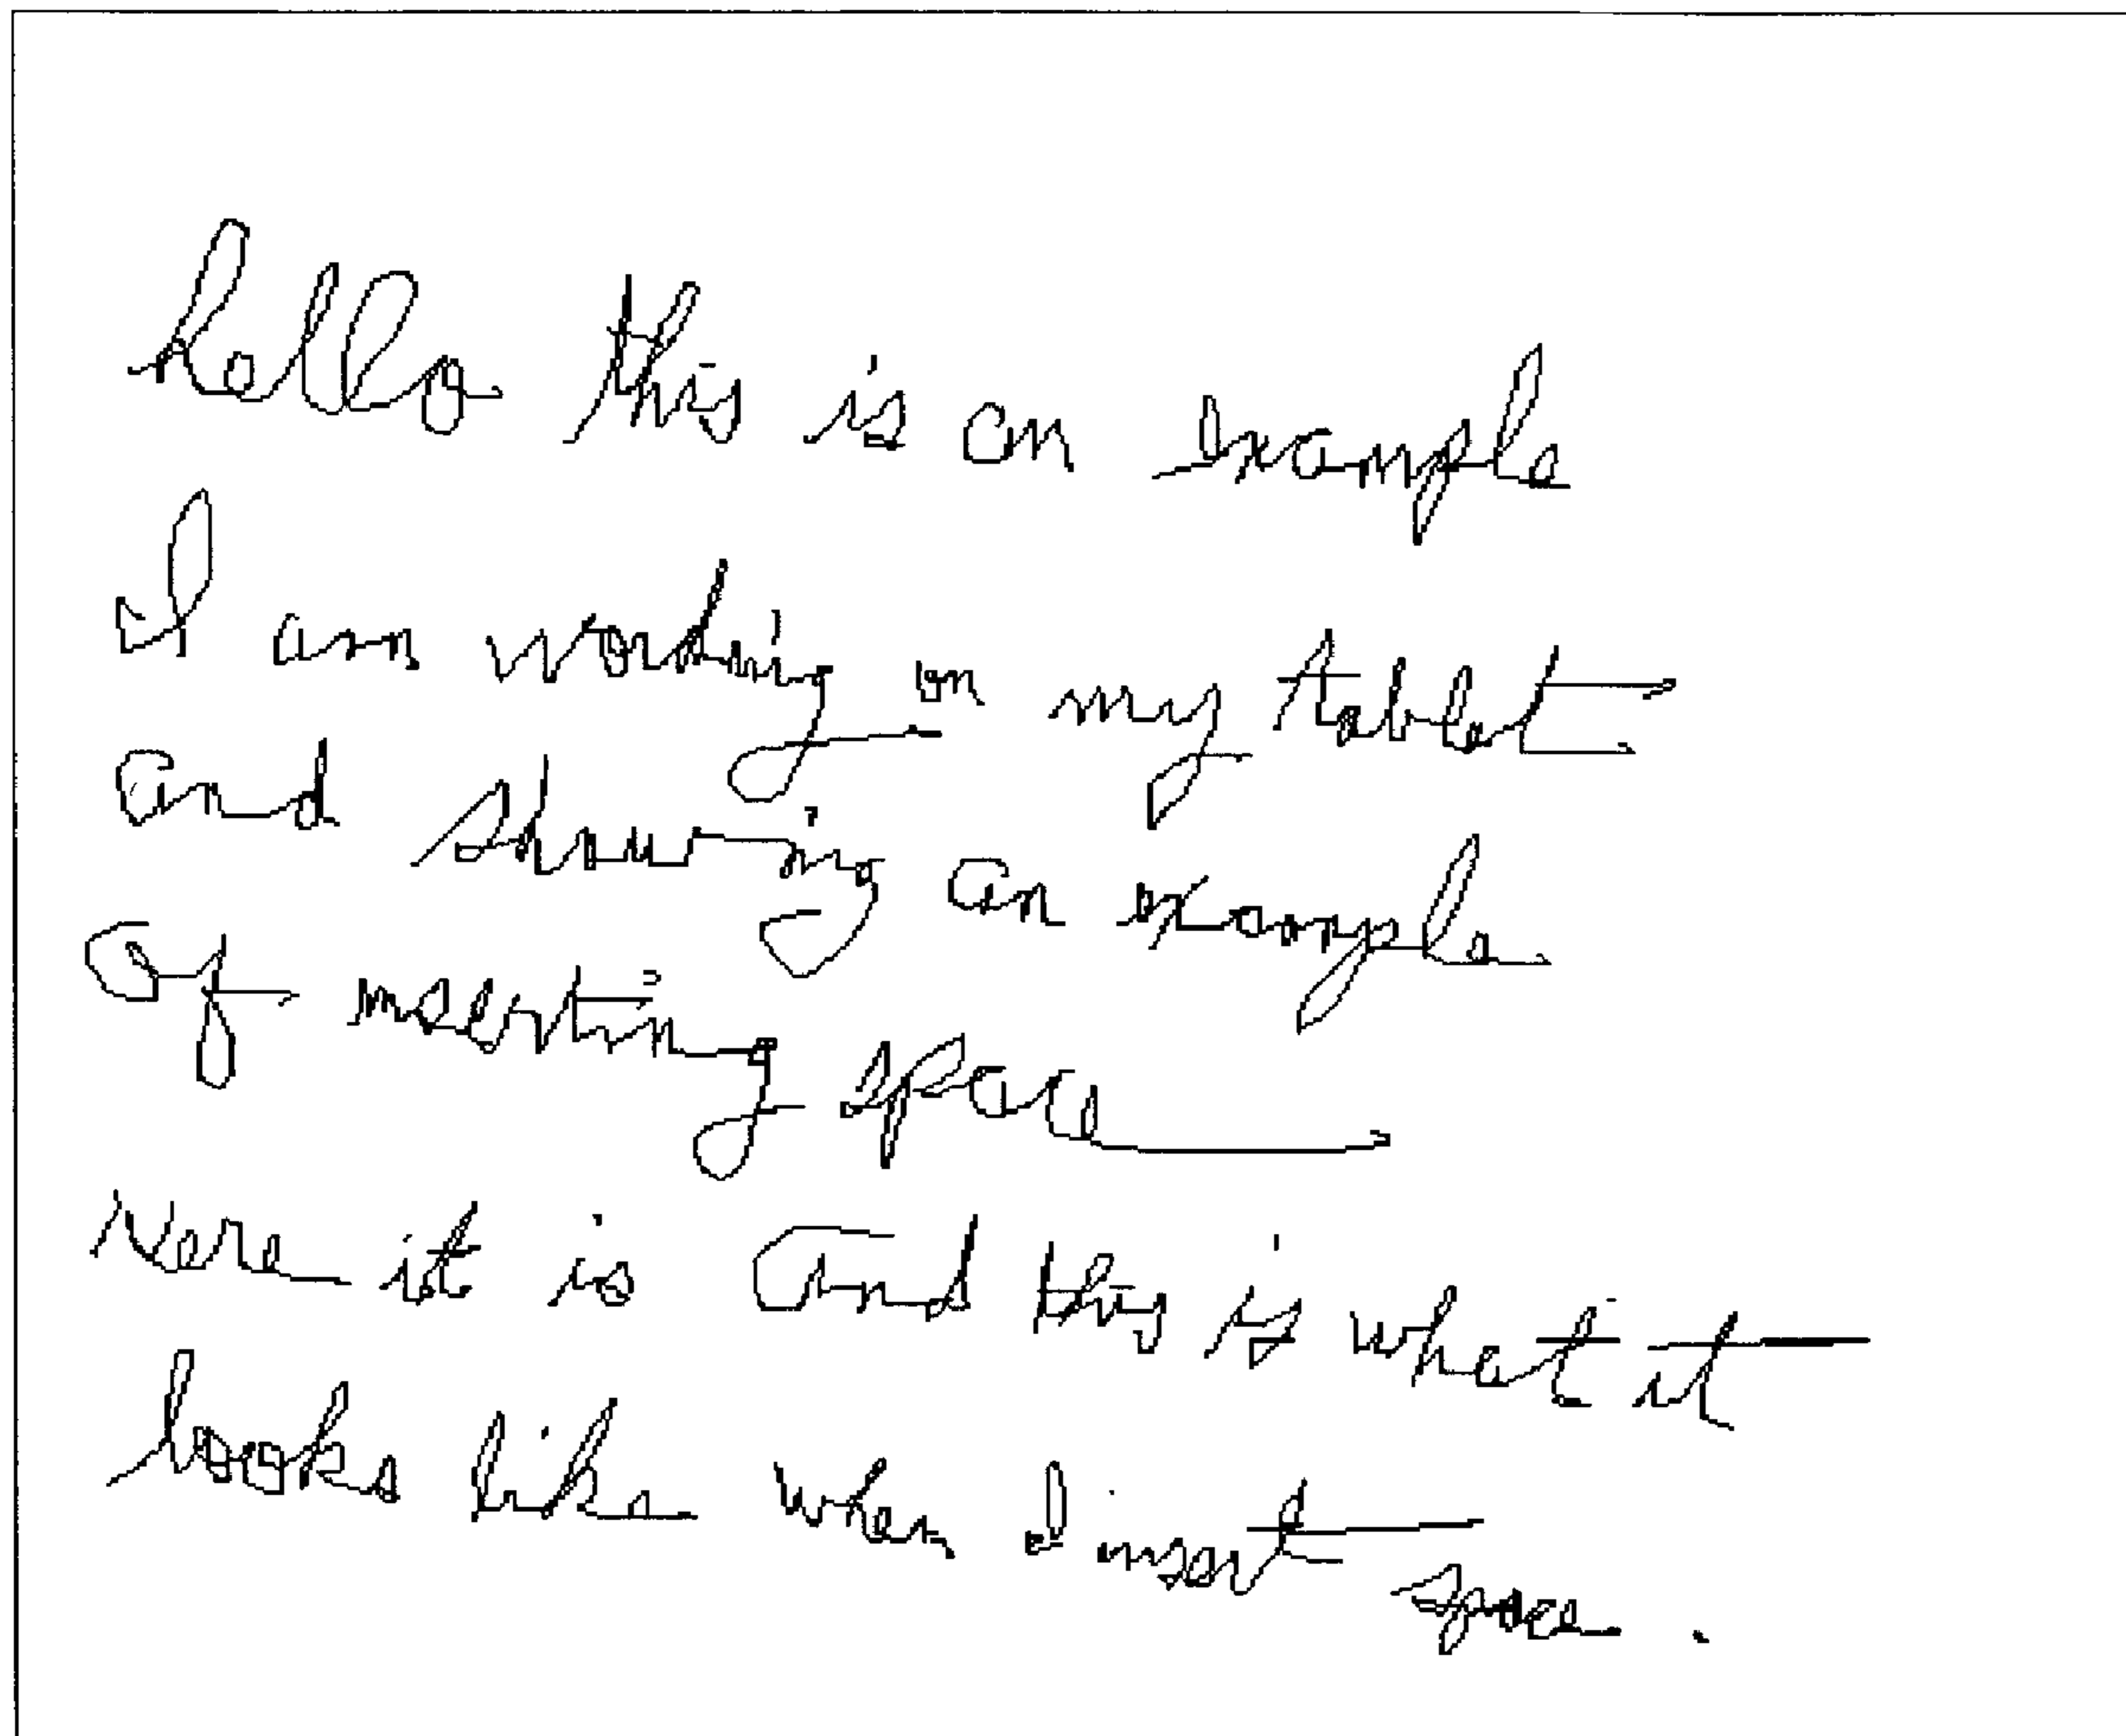 hello this is an example
I am working on my tablet
and showing an example
Of inserting space
Here it is and this is what it
looks like when I insert space.